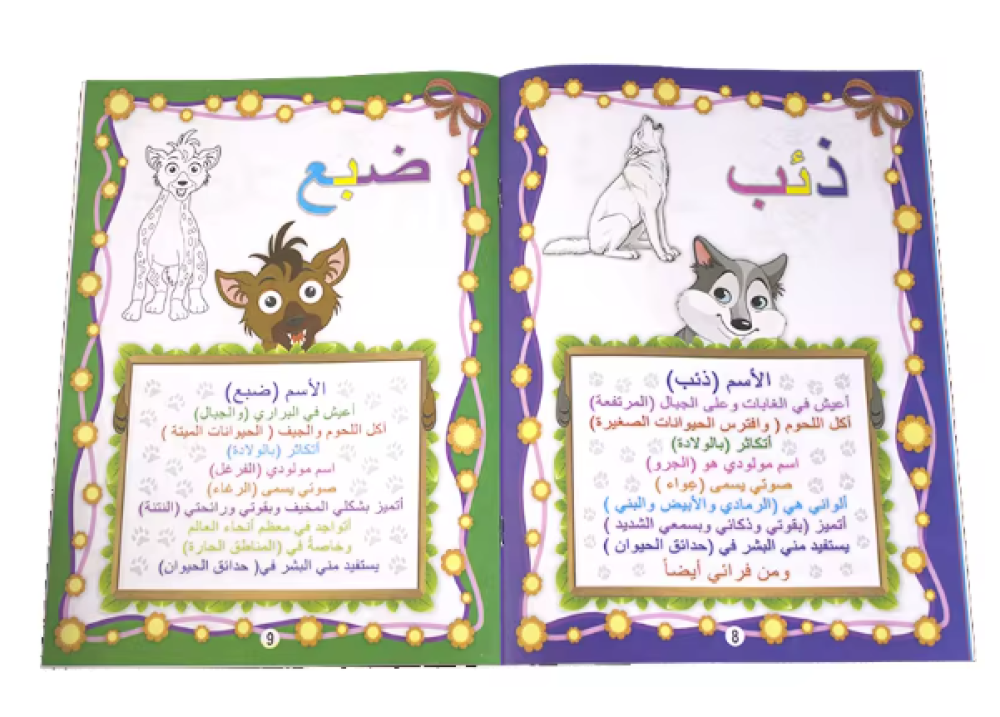 ذئب
الأسم (ذئب)
أعيش في الغابات وعلى الجبال (المرتفعة)
آكل اللحوم ( وافترس الحيوانات الصغيرة)
أتكاثر (بالولادة)
اسم مولودي هو (الجرو)
صوتي يسمى (عواء )
ألواني هي (الرمادي والأبيض والبني )
أتميز (بقوتي وذكائي وبسمعي الشديد )
يستفيد مني البشر في (حدائق الحيوان )
ومن فرائي أيضاً
8
ضبع
الأسم (ضبع)
أعيش في البراري (والجبال)
آكل اللحوم والجيف ( الحيوانات الميتة )
أتكاثر (بالولادة)
اسم مولودي (الفرغل)
صوتي يسمى (الرغاء)
أتميز بشكلي المخيف وبقوتي ورائحتي (النتنة)
أتواجد في معظم أنحاء العالم
وخاصةً في (المناطق الحارة)
يستفيد مني البشر في( حدائق الحيوان)
9